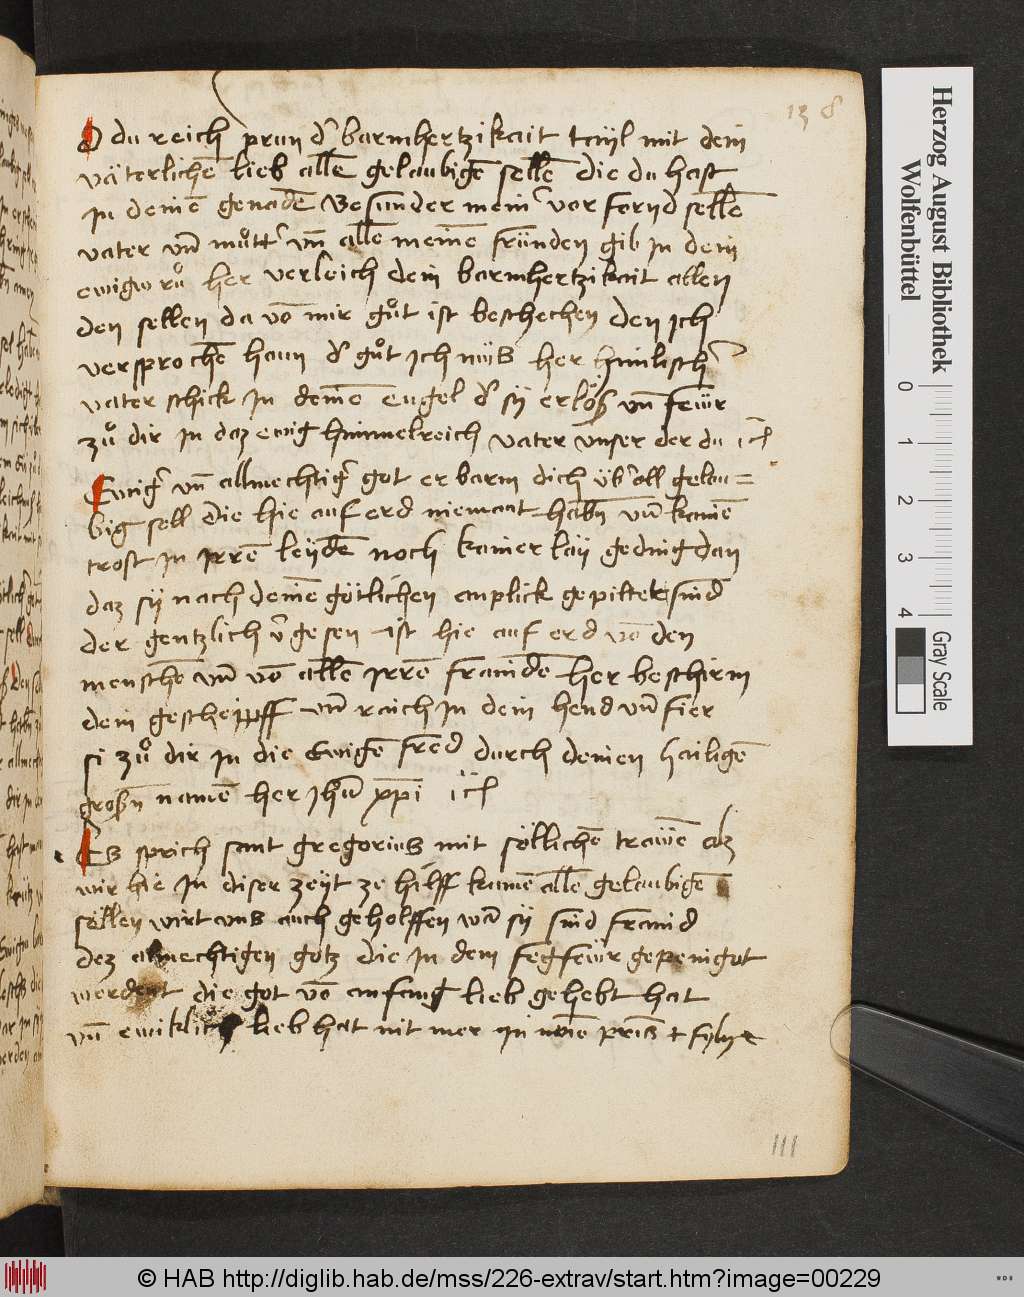 138
O du reich prun d' barmhertzikait tayl mit dein
väterlichē lieb allē gelaubigē sellē die du hast
in deinē genadē Besunder mein' vor foryd sellē
vater vn̄ muͦtt' vn̄ allē meinē fründen gib in dein
ewig ruͦ her verleich dein barmhertzikait allen
den sellen da vō mir guͦt ist beschechen den ich
versprochē haun d' guͦt ich nüß her himlisch'
vater schick in deinē engel d' sy erlöß vn̄ feür
zuͦ dir in daz ewig himmelreich vater unser der du
Ewig' vn̄ allmechtig' got erbarm dich üb' all gelau=
big sell die hie auf erd niemant habn̄ vn̄ kainē
trost in irrē leydē noch kainer lay geding dan
daz sy nach deinē götlichen anplick gepiltet sind
der gentzlich v'gesen ist hie auf erd vō den
menschē vn̄ vō allē irrē fraindē her beschirm
dein gescheppff vn̄ raich in dein hend vn̄ fier
si zuͦ dir in die Ewigē fred durch deinen hailigē
großn̄ namē her ihū xp̄i
Es sprich sant gregorius mit söllichē trawē alz
wir hie in diser zeyt ze hilff kumē allē gelaubigē
sellen wirt uns auch geholffen wā sy sind fraind
dez almechtigen gotz die in dem fegfeür gepeinigot
werdent die got vō anfang lieb gehebt hat
vn̄ ewiklich lieb hat nit mer In noīe pr̄is + fyly
111
Herzog August Bibliothek
Wolfenbüttel
0 1 2 3 4
Gray Scale
© HAB http://diglib.hab.de/mss/226-extrav/start.htm?image=00229